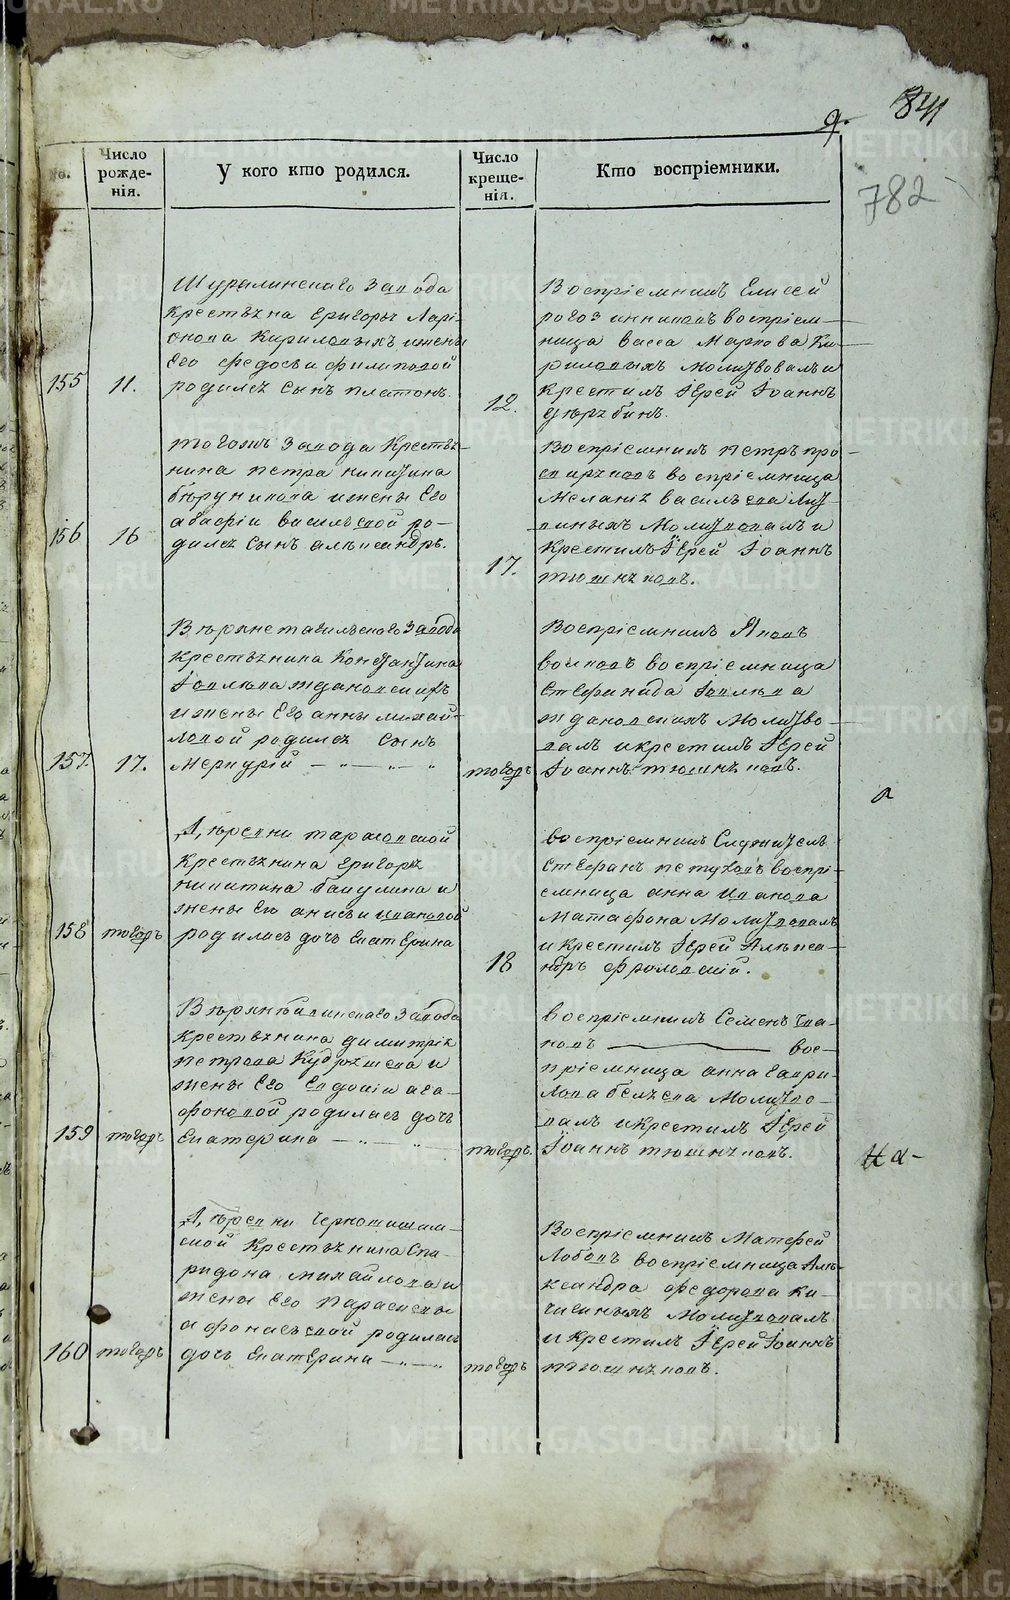 841
9.
782
No.
Число рожде-нія.
У кого кто родился.
Число креще-нія.
Кто воспріемники.
155
11.
Шуралинскаго завода
крестьяна Григорья Ларі-
онова Кириловыхъ и жены
Его Федосьи Филиповой
родился сынъ Платонъ.
12.
Воспріемникъ Елисей
воспріем-
ница Васса Маркова Ки-
риловыхъ Молитвовалъ и
крестилъ Іерей Іоаннъ
156
16
тогожъ завода крестья-
нина Петра Никитина
и жены Его
Васильевой ро-
дился сынъ Александръ.
17.
Воспріемникъ Петръ
воспріемница
Меланія Васильева
Молитвовалъ и
крестилъ Іерей Іоаннъ
Тюшняковъ.
157.
17.
Верхнетагильскаго завода
крестьянина Константина
Іовлева Ждановскихъ
и жены Его Анны Михай-
ловой родился сынъ
Меркурій
тогоръ
Воспріемникъ Яковъ
Волковъ воспріемница
Стефанида Іовлева
Ждановскихъ Молитво-
валъ и крестилъ Іерей
Іоаннъ Тюшняковъ.
158
тогоръ
Деревни Тарасовской
крестьянина Григорья
Никитина Бакулина и
жены Его Анисьи Ивановой
родилась дочь Екатерина
18
воспріемникъ Служитель
Стефанъ Петуховъ воспрі-
емница Анна Иванова
Матафона Молитвовалъ
и крестилъ Іерей Алекса-
ндръ Фроловскій.
159
тогоръ
Верхнейвинскаго завода
крестьянина Димитрія
Петрова Кудряшева и
жены Его Евдокіи Ага-
фоновой родилась дочь
Екатерина
тогоръ.
воспріемникъ Семенъ
вос-
пріемница Анна Гаври-
лова Беляева Молитво-
валъ и крестилъ Іерей
Іоаннъ Тюшняковъ.
160
тогоръ
Деревни
крестьянина Спи-
ридона Михайлова и
жены Его Парасковьи
Афонасьевой родилась
дочь Екатерина
тогоръ
Воспріемникъ Матфей
Лобовъ воспріемница Але-
ксандра Федорова Ки-
Молитвовалъ
и крестилъ Іерей Іоаннъ
Тюшняковъ.
METRIKI.GASO-URAL.RU